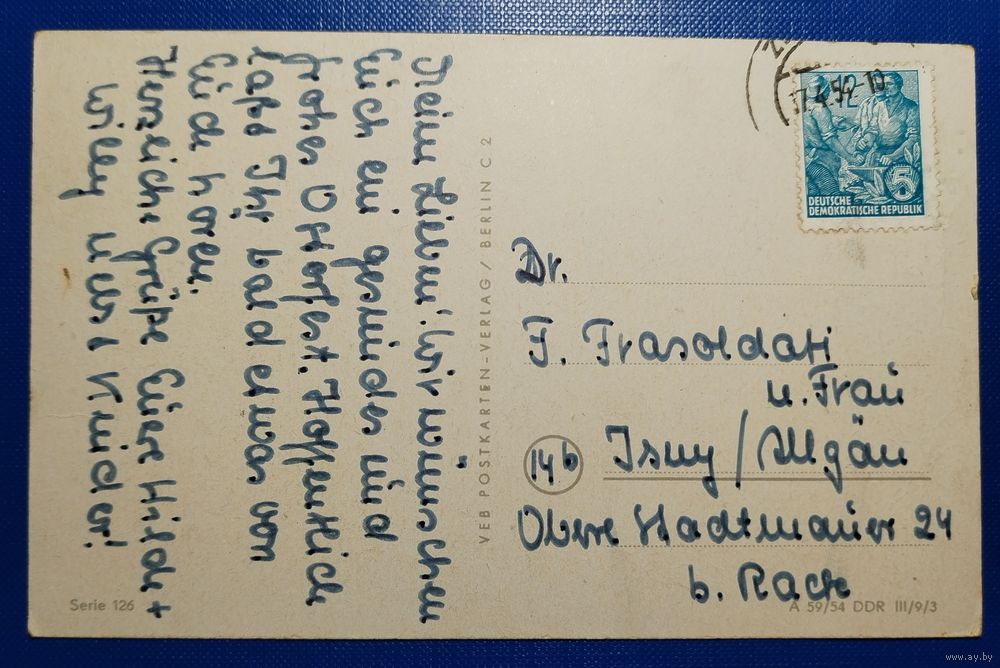 Meine Lieben! Wir wünschen
Euch ein gesundes und
frohes Osterfest. Hoffentlich
laßt Ihr bald etwas von
Euch hören.
Herzliche Grüße Eure Hilde +
Willy nebst Kinder!
VEB POSTKARTEN-VERLAG / BERLIN C 2
Serie 126
17.4.54-10
5
DEUTSCHE
DEMOKRATISCHE REPUBLIK
Dr.
F. Frasoldati
u. Frau
14b Isny / Allgäu
Obere Stadtmauer 24
b. Rack
A 59/54 DDR III/9/3
www.ay.by